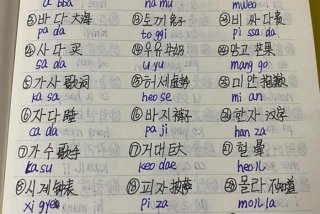 a bba na mu mweo
②바다 大海 ⑬토끼 兔子 비싸다 贵
pa da to ggi pi ssa da
④사다 买 ⑭우유 牛奶 망고 芒果
sa da u yu mang go
⑤가사 歌词 ⑮허세 虚势 미안 抱歉
ka sa heo se mi an
⑥자다 睡 ⑯바지 裤子 한자 汉字
ca da pa ji han za
⑦가수 歌手 ⑰거대 巨大 혈
ka su keo dae heoll
⑧시계 钟表 ⑱피자 披萨 몰라 不知道
xi gye pi za molla